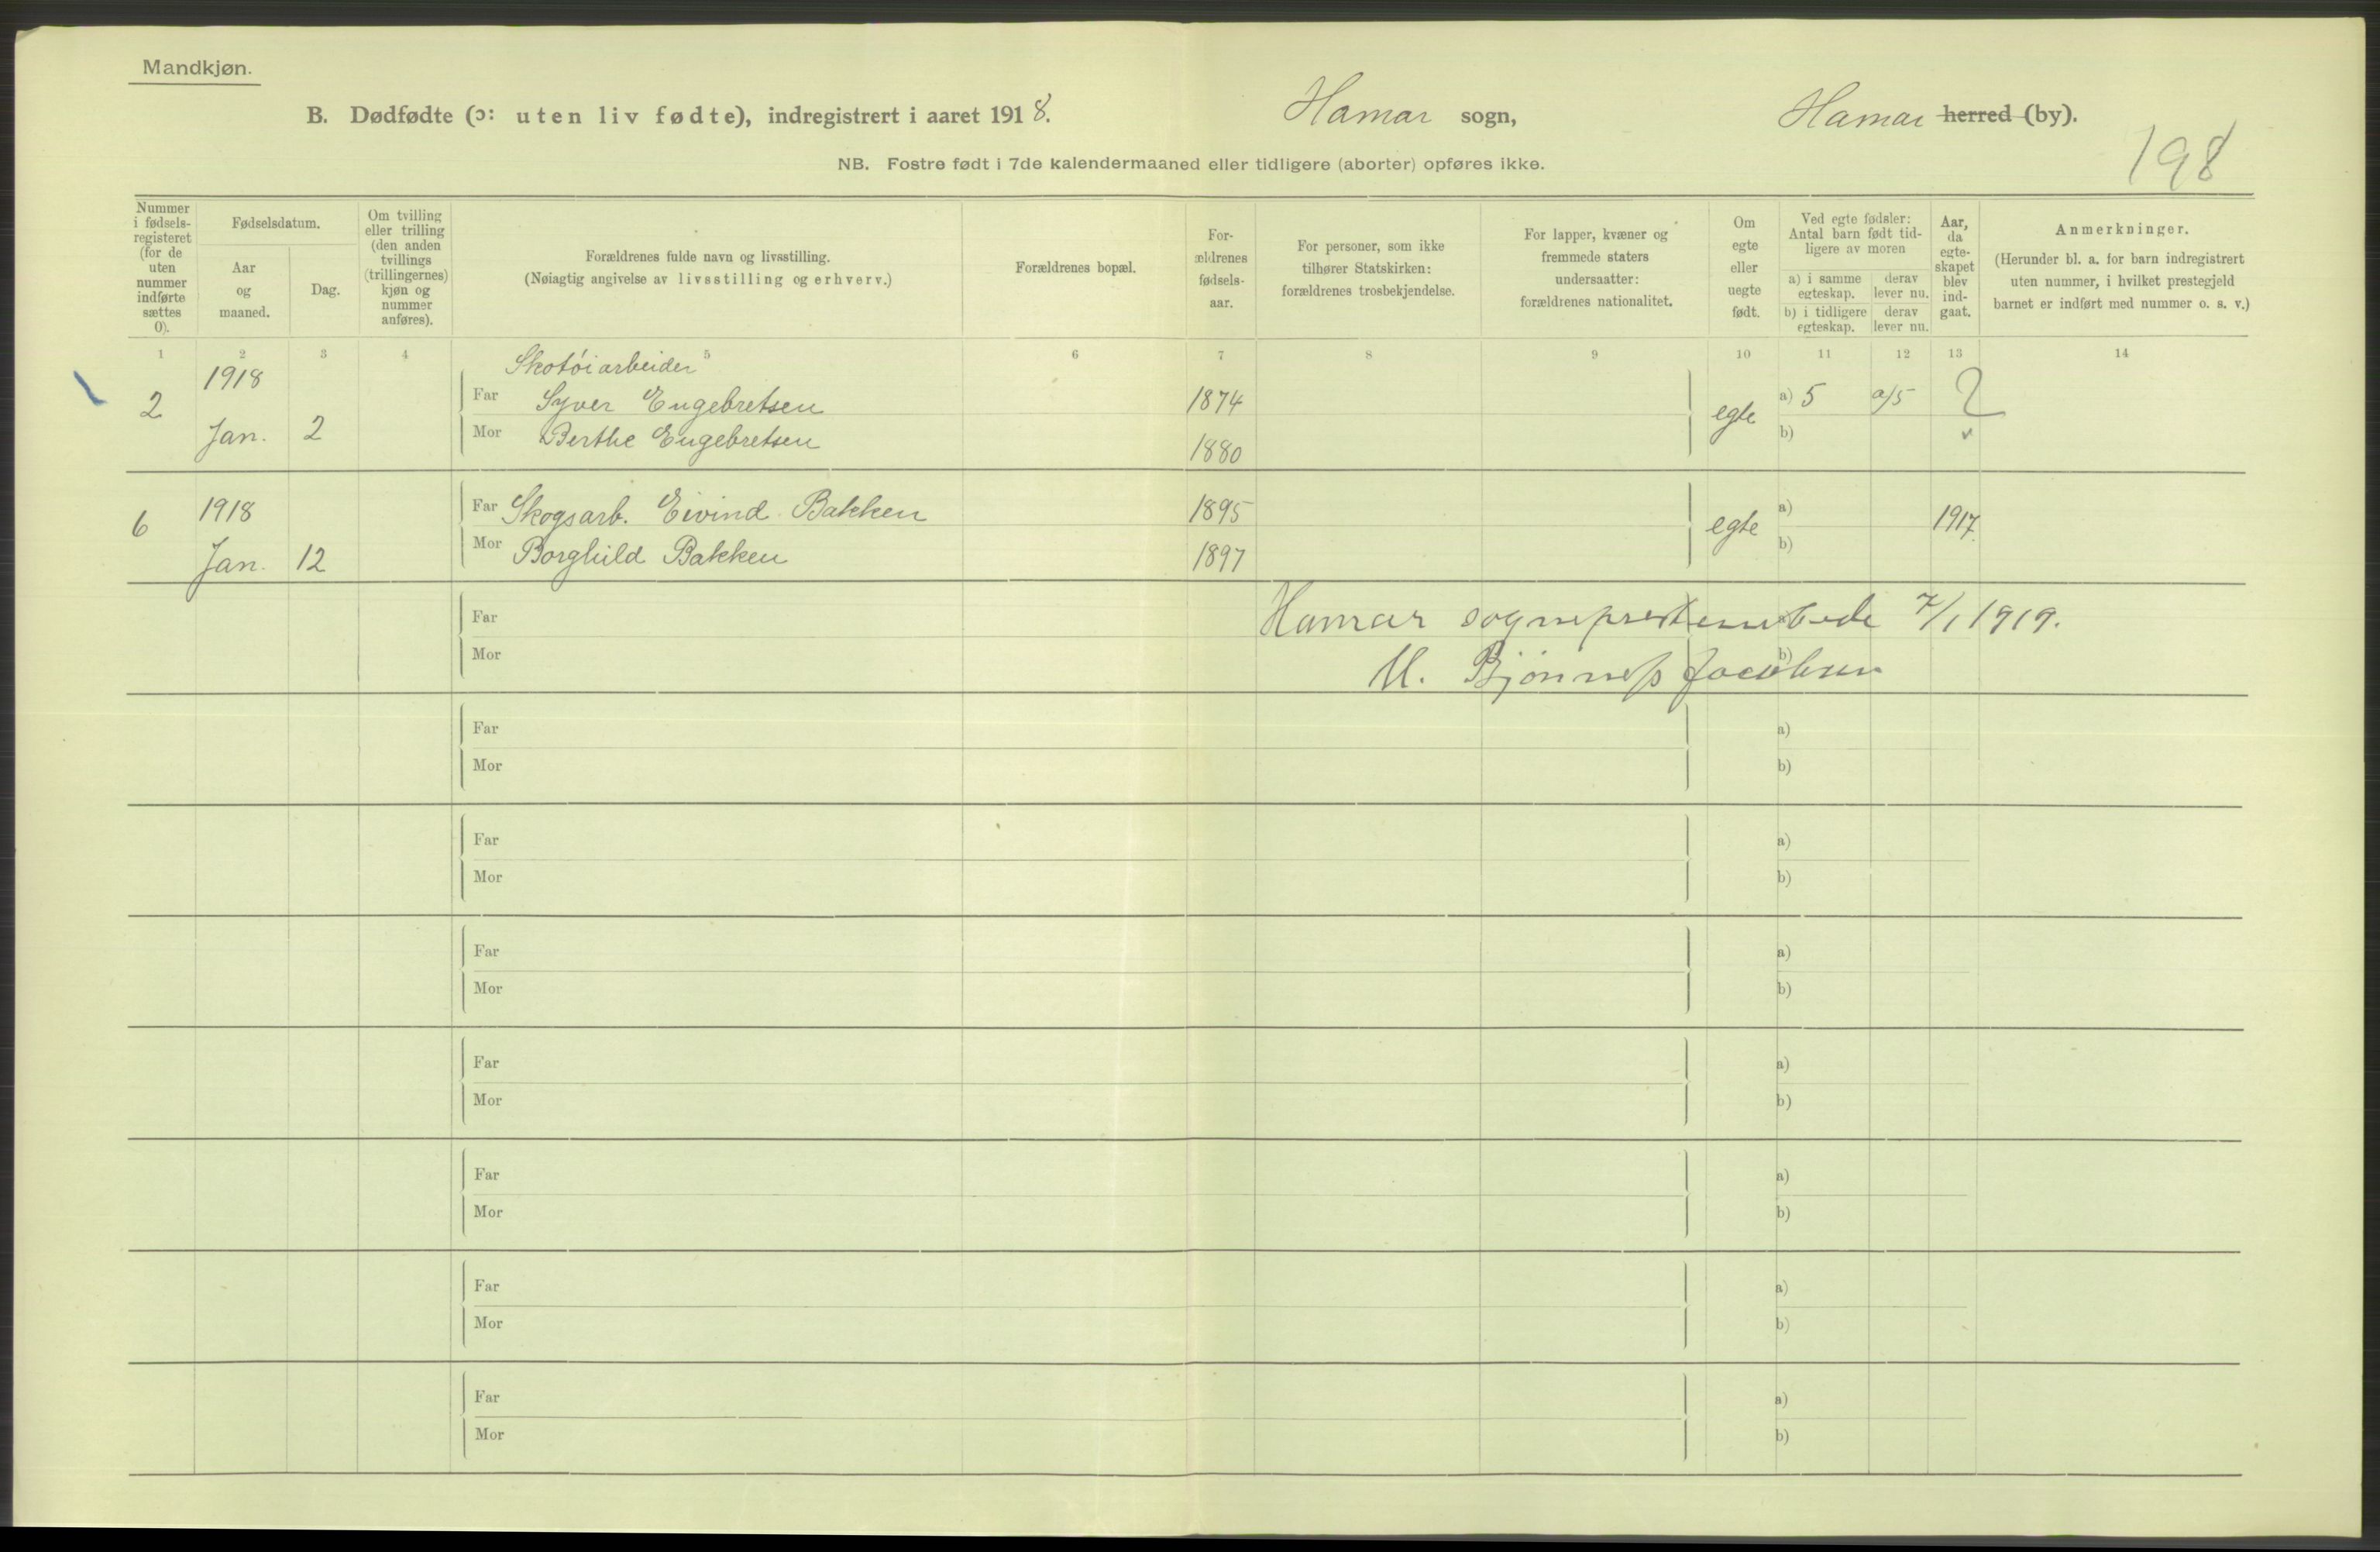 Mandkjøn.
B. Dødfødte (ɔ: uten liv fødte), indregistrert i aaret 1918. Hamar sogn, Hamar herred (by).
198
NB. Fostre født i 7de kalendermaaned eller tidligere (aborter) opføres ikke.
Nummer i fødsels-registeret (for de uten nummer indførte sættes 0).
Fødselsdatum.
Aar og maaned.
Dag.
Om tvilling eller trilling (den anden tvillings (trillingernes) kjøn og nummer anføres).
Forældrenes fulde navn og livsstilling.
(Nøiagtig angivelse av livsstilling og erhverv.)
Forældrenes bopæl.
For-ældrenes fødsels-aar.
For personer, som ikke tilhører Statskirken: forældrenes trosbekjendelse.
For lapper, kvæner og fremmede staters undersaatter: forældrenes nationalitet.
Om egte eller uegte født.
Ved egte fødsler: Antal barn født tid-ligere av moren
a) i samme egteskap. derav lever nu.
b) i tidligere egteskap. derav lever nu.
Aar, da egte-skapet blev ind-gaat.
Anmerkninger.
(Herunder bl. a. for barn indregistrert uten nummer, i hvilket prestegjeld barnet er indført med nummer o. s. v.)
1 2 3 4 5 6 7 8 9 10 11 12 13 14
Skotøiarbeider
2 1918 Far Syver Engebretsen 1874 egte a) 5 a/5 ?
Jan. 2 Mor Berthe Engebretsen 1880 b)
6 1918 Far Skogsarb. Eivind Bakken 1895 egte a) 1917
Jan. 12 Mor Borghild Bakken 1897 b)
Far Hamar sogneprestembede 7/1 1919. a)
Mor M. Bjønness Jacobsen b)
Far a)
Mor b)
Far a)
Mor b)
Far a)
Mor b)
Far a)
Mor b)
Far a)
Mor b)
Far a)
Mor b)
Far a)
Mor b)